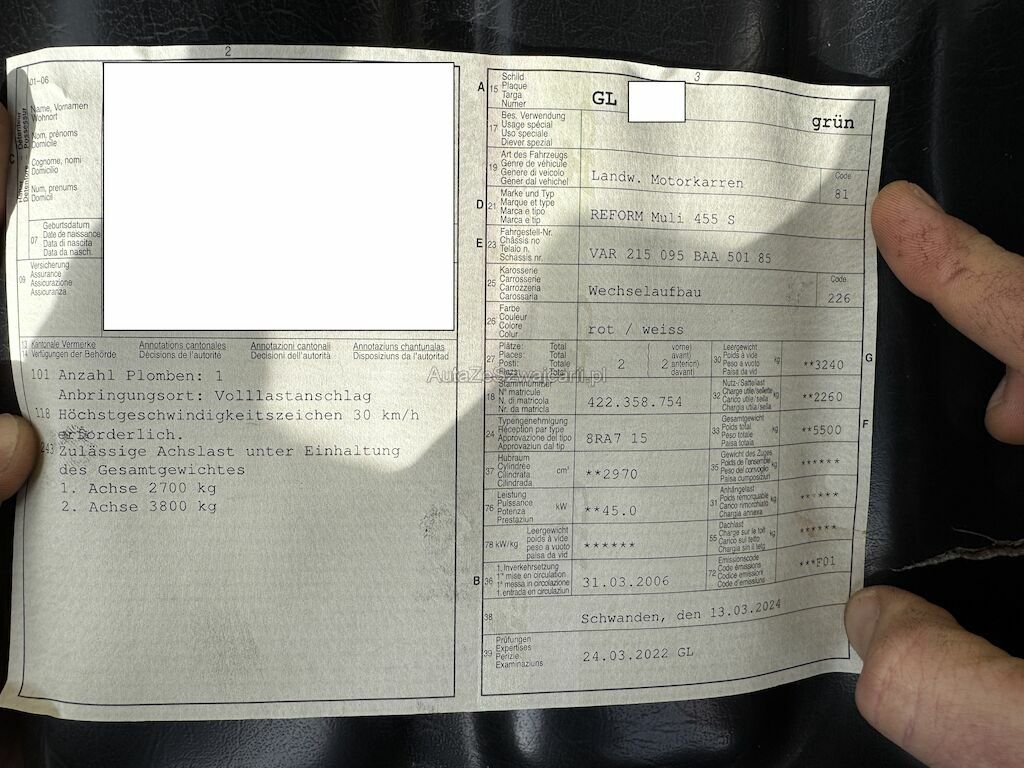 2
01-06
Name, Vornamen
Wohnort
Nom, prénoms
Domicile
Cognome, nomi
Domicilio
Num, prenums
Domicil
C
07
Geburtsdatum
Date de naissance
Data di nascita
Data da nasch.
09
Versicherung
Assurance
Assicurazione
Assicuranza
13
14
Kantonale Vermerke
Verfügungen der Behörde
Annotations cantonales
Décisions de l'autorité
Annotazioni cantonali
Decisioni dell'autorità
Annotaziuns chantunalas
Disposiziuns da l'autoritad
101 Anzahl Plomben: 1
Anbringungsort: Volllastanschlag
118 Höchstgeschwindigkeitszeichen 30 km/h
erforderlich.
243 Zulässige Achslast unter Einhaltung
des Gesamtgewichtes
1. Achse 2700 kg
2. Achse 3800 kg
3
A 15
Schild
Plaque
Targa
Numer
GL
grün
17
Bes. Verwendung
Usage spécial
Uso speciale
Diever spezial
19
Art des Fahrzeugs
Genre de véhicule
Genere di veicolo
Gener dal vehichel
Landw. Motorkarren
Code
81
D 21
Marke und Typ
Marque et type
Marca e tipo
Marca e tip
REFORM Muli 455 S
E 23
Fahrgestell-Nr.
Châssis no
Telaio n.
Schassis nr.
VAR 215 095 BAA 501 85
25
Karosserie
Carrosserie
Carrozzeria
Carossaria
Wechselaufbau
Code
226
26
Farbe
Couleur
Colore
Colur
rot / weiss
27
Plätze: Total
Places: Total
Posti: Totale
Total
2
vorne)
avant)
anteriori)
davant)
2
30
Leergewicht
Poids à vide
Peso a vuoto
Paisa da vid
kg
**3240
G
AutaZeSzwajcarii.pl
18
Stammnummer
N° matricule
N. di matricola
Nr. da matricla
422.358.754
32
Nutz-/Sattellast
Charge utile/sellette
Carico utile/sella
Chargia utila/sella
kg
**2260
24
Typengenehmigung
Réception par type
Approvazione del tipo
Approvaziun dal tip
8RA7 15
33
Gesamtgewicht
Poids total
Peso totale
Paisa totala
kg
**5500
F
37
Hubraum
Cylindrée
Cilindrata
Cilindrada
cm³
**2970
35
Gewicht des Zuges
Poids de l'ensemble
Peso del convoglio
Paisa cumposiziun
kg
******
76
Leistung
Puissance
Potenza
Prestaziun
kW
**45.0
31
Anhängelast
Poids remorquable
Carico rimorchiato
Chargia annexa
kg
******
78 kW/kg
Leergewicht
poids à vide
peso a vuoto
paisa da vid
******
55
Dachlast
Charge sur le toit
Carico sul tetto
Chargia sin il tetg
kg
******
B 36
1. Inverkehrsetzung
1re mise en circulation
1a messa in circolazione
1. entrada en circulaziun
31.03.2006
72
Emissionscode
Code émissions
Codice emissioni
Code d'emissiuns
***F01
38
Schwanden, den 13.03.2024
39
Prüfungen
Expertises
Perizie
Examinaziuns
24.03.2022 GL